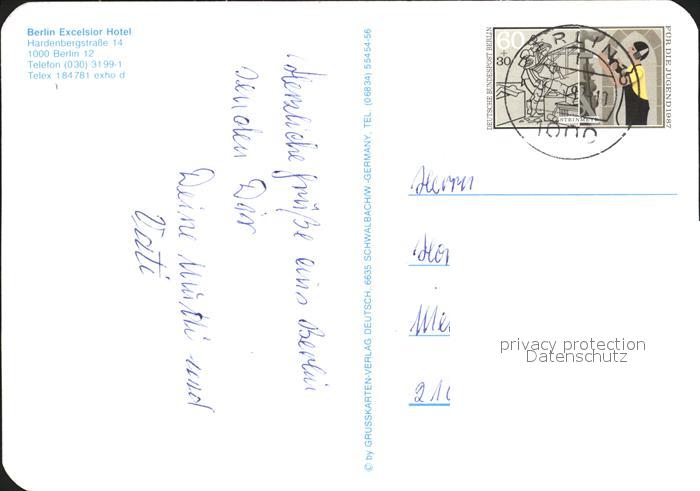 Berlin Excelsior Hotel
Hardenbergstraße 14
1000 Berlin 12
Telefon (030) 3199-1
Telex 184781 exho d
Herzliche Grüße aus Berlin
senden Dir
Deine Mutti und
Vati
© by GRUSSKARTEN-VERLAG DEUTSCH, 6635 SCHWALBACH/W.-GERMANY, TEL. (06834) 55454-56
DEUTSCHE BUNDESPOST BERLIN
60
+30
FÜR DIE JUGEND 1987
STEINMETZ
BERLIN
1000
Herrn
privacy protection
Datenschutz